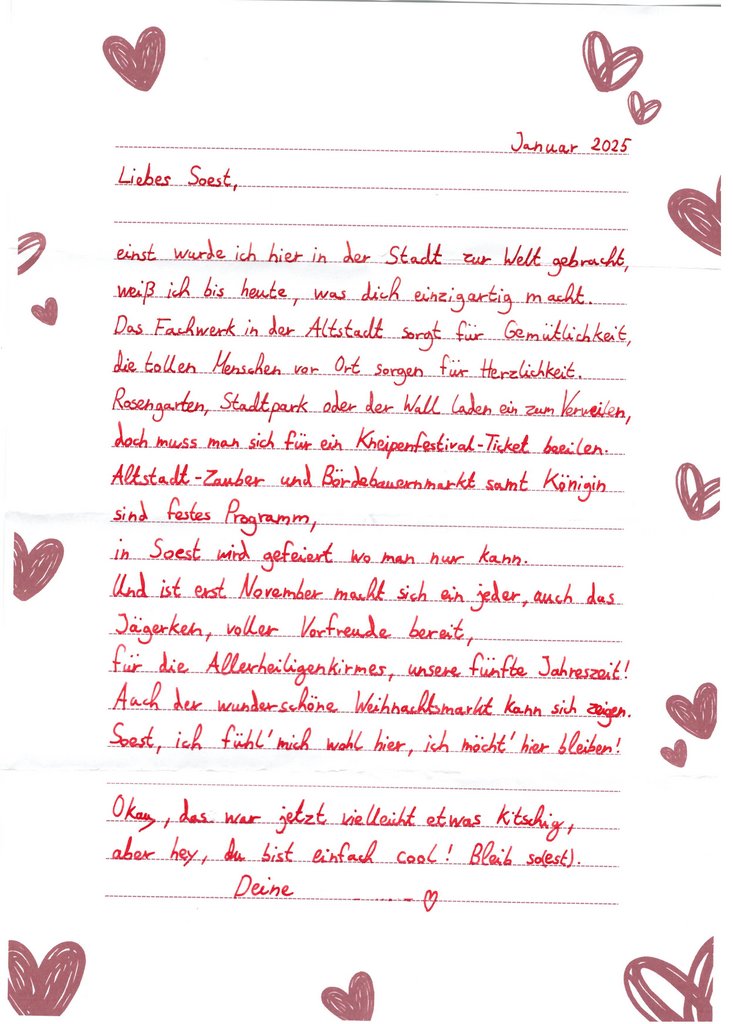 Januar 2025
Liebes Soest,
einst wurde ich hier in der Stadt zur Welt gebracht,
weiß ich bis heute, was dich einzigartig macht.
Das Fachwerk in der Altstadt sorgt für Gemütlichkeit,
die tollen Menschen vor Ort sorgen für Herzlichkeit.
Rosengarten, Stadtpark oder der Wall laden ein zum Verweilen,
doch muss man sich für ein Kneipenfestival-Ticket beeilen.
Altstadt-Zauber und Bördebauernmarkt samt Königin
sind festes Programm,
in Soest wird gefeiert wo man nur kann.
Und ist erst November macht sich ein jeder, auch das
Jägerken, voller Vorfreude bereit,
für die Allerheiligenkirmes, unsere fünfte Jahreszeit!
Auch der wunderschöne Weihnachtsmarkt kann sich zeigen.
Soest, ich fühl' mich wohl hier, ich möcht' hier bleiben!
Okay, das war jetzt vielleicht etwas kitschig,
aber hey, du bist einfach cool! Bleib so(est).
Deine ------ ♡